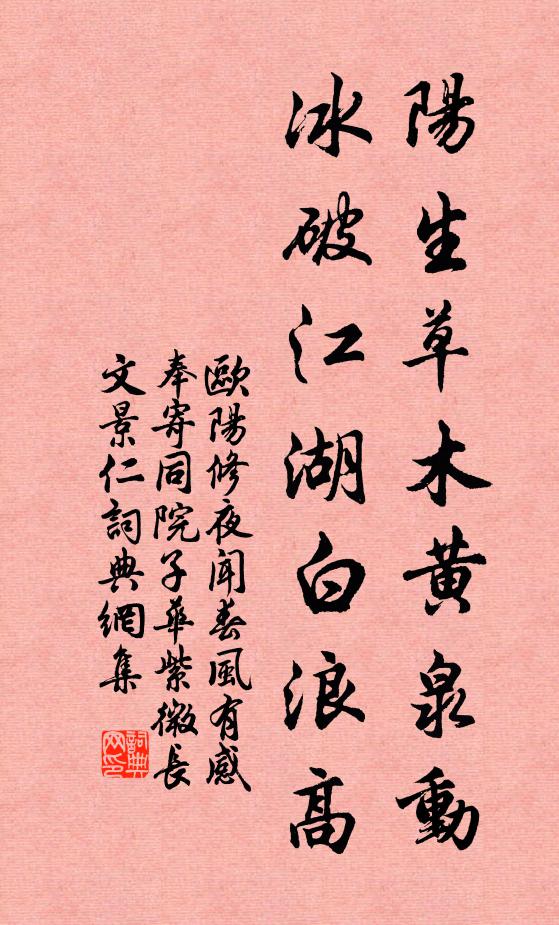 陽生草木黃泉動
冰破江湖白浪高
歐陽修夜聞春風有感
奉寄同院子華紫微長
文景仁詞典網集
詞典网印